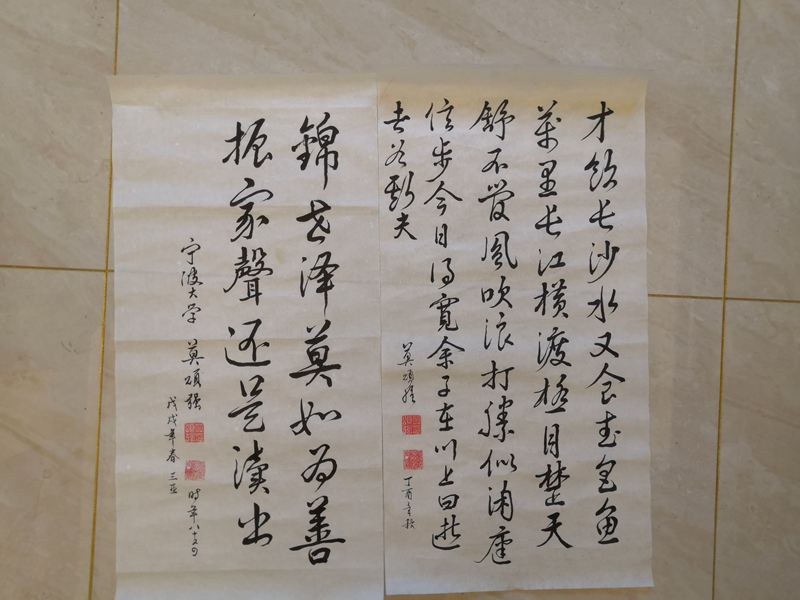 才飲长沙水又食武昌魚
萬里长江横渡极目楚天
舒不管風吹浪打勝似闲庭
信步今日得寬余子在川上曰逝
者如斯夫
莫碩强
丁酉年秋
錦世泽莫如为善
振家聲还是读书
宁波大学 莫碩强
戊戌年春 三亚
時年八十